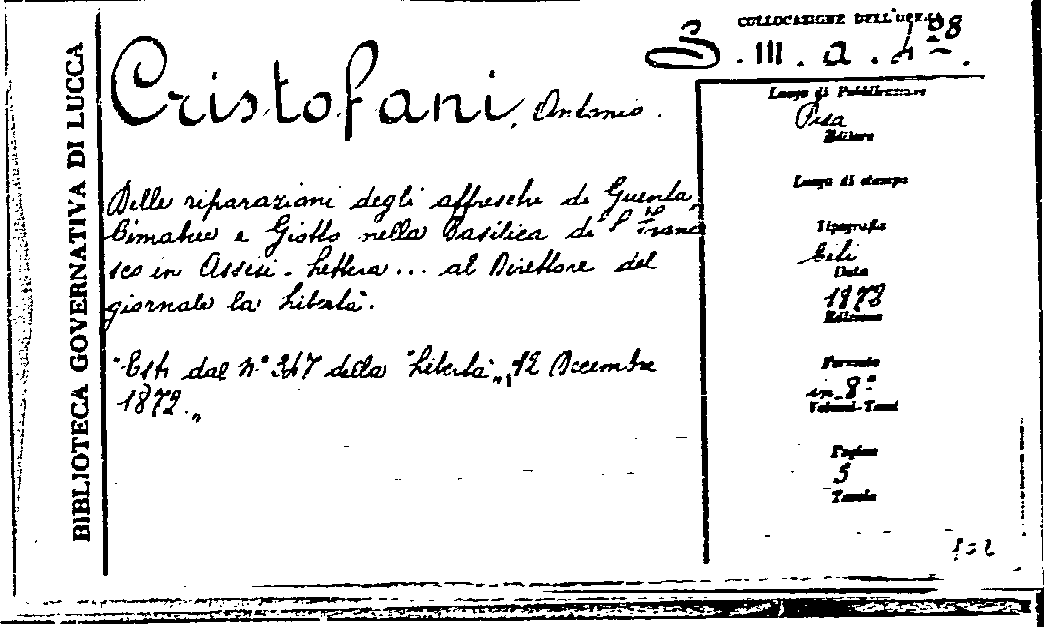 BIBLIOTECA GOVERNATIVA DI LUCCA
COLLOCAZIONE DELL'OPERA
. III . a .
Cristofani, Antonio.
Delle riparazioni degli affreschi di Giunta,
Cimabue e Giotto nella Basilica di S. France
sco in Assisi. Lettera ... al Direttore del
giornale la Libertà.
"Estr dal N° 347 della "Libertà", 12 Decembre
1872.„
Luogo di Pubblicazione
Pisa
Editore
Luogo di stampa
Tipografia
Data
1872
Edizione
Formato
in 8°
Volumi-Tomi
Pagine
5
Tavole